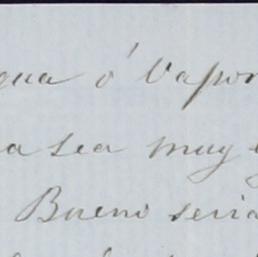 gua ó Vapor
a sea muy
Bueno seria